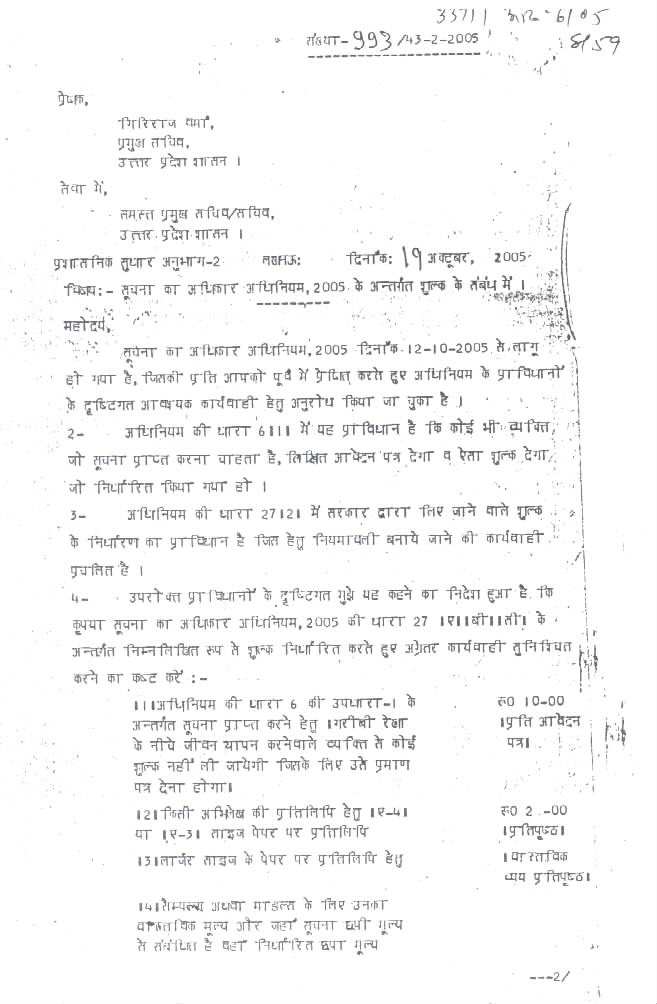 33711 आर-6/05
संख्या-993/43-2-2005
8/59
प्रेषक,
गिरिराज वर्मा,
प्रमुख सचिव,
उत्तर प्रदेश शासन ।
सेवा में,
समस्त प्रमुख सचिव/सचिव,
उत्तर प्रदेश शासन ।
प्रशासनिक सुधार अनुभाग-2 लखनऊ: दिनांक: 19 अक्टूबर, 2005
विषय:- सूचना का अधिकार अधिनियम, 2005 के अन्तर्गत शुल्क के संबंध में ।
महोदय,
सूचना का अधिकार अधिनियम, 2005 दिनांक 12-10-2005 से लागू
हो गया है, जिसकी प्रति आपको पूर्व में प्रेषित करते हुए अधिनियम के प्राविधानों
के दृष्टिगत आवश्यक कार्यवाही हेतु अनुरोध किया जा चुका है ।
2- अधिनियम की धारा 6।1। में यह प्राविधान है कि कोई भी व्यक्ति,
जो सूचना प्राप्त करना चाहता है, लिखित आवेदन पत्र देगा व ऐसा शुल्क देगा,
जो निर्धारित किया गया हो ।
3- अधिनियम की धारा 27।2। में सरकार द्वारा लिए जाने वाले शुल्क
के निर्धारण का प्राविधान है जिस हेतु नियमावली बनाये जाने की कार्यवाही
प्रचलित है ।
4- उपरोक्त प्राविधानों के दृष्टिगत मुझे यह कहने का निदेश हुआ है कि
कृपया सूचना का अधिकार अधिनियम, 2005 की धारा 27 ।ए।।बी।।सी। के
अन्तर्गत निम्नलिखित रूप से शुल्क निर्धारित करते हुए अग्रेतर कार्यवाही सुनिश्चित
करने का कष्ट करें :-
।1।अधिनियम की धारा 6 की उपधारा-1 के रू0 10-00
अन्तर्गत सूचना प्राप्त करने हेतु ।गरीबी रेखा ।प्रति आवेदन
के नीचे जीवन यापन करनेवाले व्यक्ति से कोई पत्र।
शुल्क नहीं ली जायेगी जिसके लिए उसे प्रमाण
पत्र देना होगा।
।2।किसी अभिलेख की प्रतिलिपि हेतु ।ए-4। रू0 2.-00
या ।ए-3। साइज पेपर पर प्रतिलिपि ।प्रतिपृष्ठ।
।3।लार्जर साइज के पेपर पर प्रतिलिपि हेतु ।वास्तविक
व्यय प्रतिपृष्ठ।
।4।सैम्पल्स अथवा माडल्स के लिए उनका
वास्तविक मूल्य और जहां सूचना छपी मूल्य
से संबंधित है वहां निर्धारित छपा मूल्य
---2/